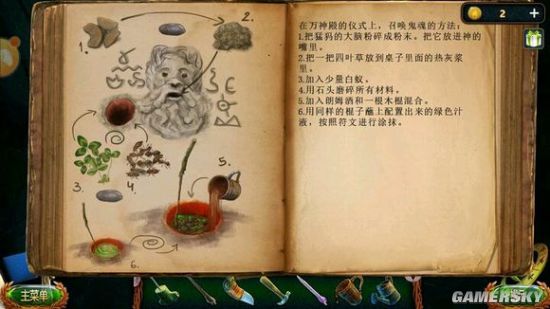 2
+
在万神殿的仪式上，召唤鬼魂的方法：
1.把猛犸的大脑粉碎成粉末。把它放进神的
嘴里。
2.把一把四叶草放到桌子里面的热灰浆
里。
3.加入少量白蚁。
4.用石头磨碎所有材料。
5.加入朗姆酒和一根木棍混合。
6.用同样的棍子蘸上配置出来的绿色汁
液，按照符文进行涂抹。
1.
2.
3.
4.
5.
6.
主菜单
GAMERSKY